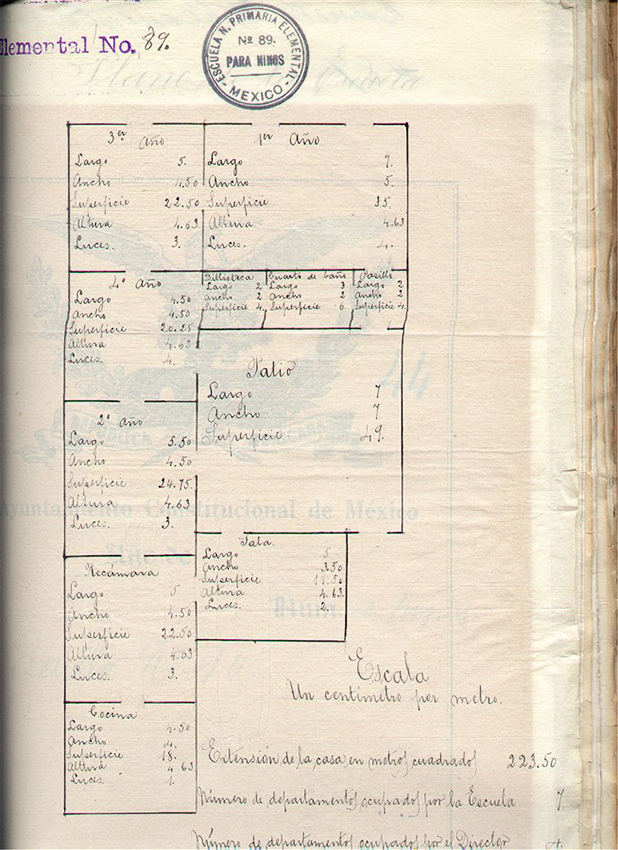 Elemental No. 89.
ESCUELA N. PRIMARIA ELEMENTAL
Nº 89.
PARA NIÑOS
MEXICO
3er Año
Largo 5.
Ancho 4.50
Superficie 22.50
Altura 4.63
Luces. 3.
1er Año
Largo 7.
Ancho 5.
Superficie 35.
Altura 4.63
Luces. 4.
4º Año
Largo 4.50
Ancho 4.50
Superficie 20.25
Altura 4.63
Luces. 4.
Biblioteca
Largo 2
Ancho 2
Superficie 4.
Cuarto de baño
Largo 3
Ancho 2
Superficie 6.
Pasillo
Largo 2
Ancho 2
Superficie 4.
Patio
Largo 7
Ancho 7
Superficie 49.
2º Año
Largo 5.50
Ancho 4.50
Superficie 24.75.
Altura 4.63
Luces. 3.
Sala.
Largo 5
Ancho 3.50
Superficie 17.50
Altura 4.63.
Luces. 2.
Recámara
Largo 5
Ancho 4.50
Superficie 22.50
Altura 4.63
Luces. 3.
Cocina
Largo 4.50
Ancho 4.
Superficie 18.
Altura 4.63
Luces. 1.
Escala
Un centímetro por metro.
Extensión de la casa en metros cuadrados 223.50
Número de departamentos ocupados por la Escuela 7
Número de departamentos ocupados por el Director 4.
Ayuntamiento Constitucional de México